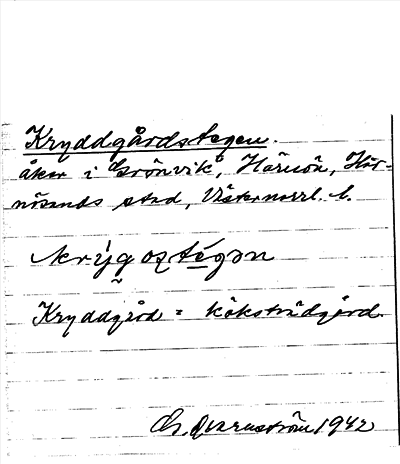 Kryddgårdstegen.
åker i Grönvik, Härnön, Här-
nösands stad, Västernorrl. l.
krýgostégən
Kryddgård = köksträdgård.
G. Qvarnström 1942